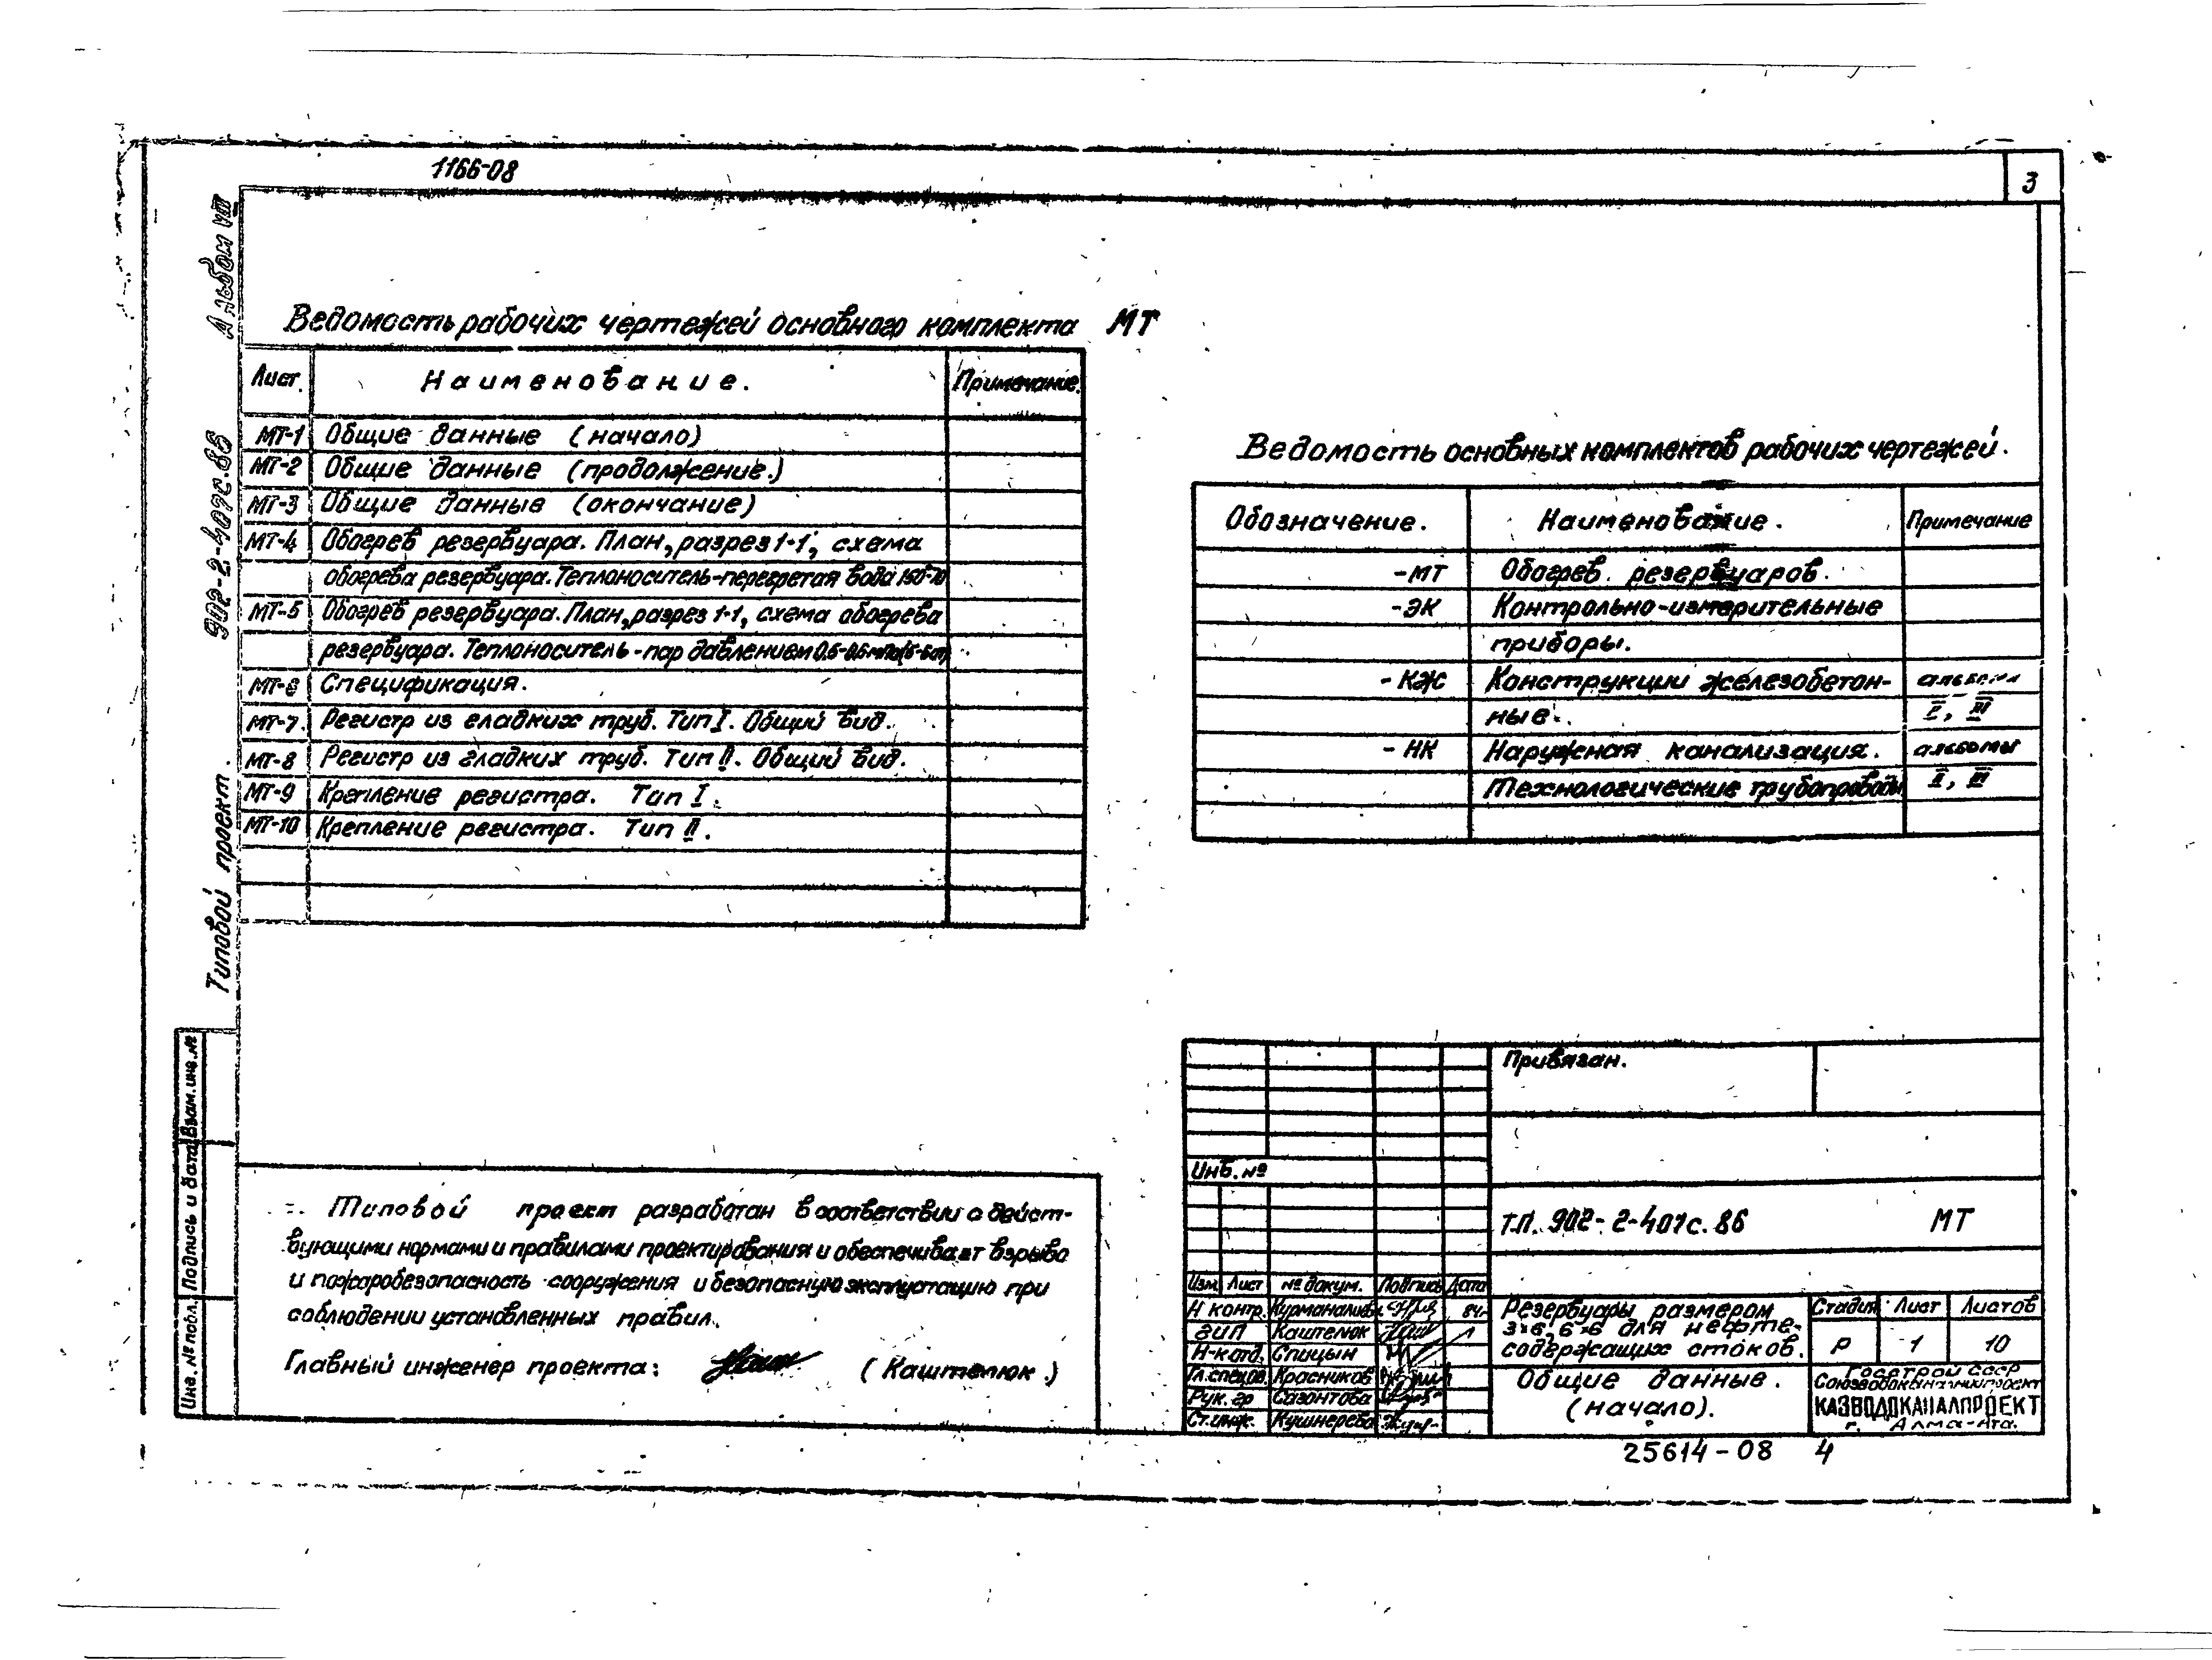 1166-08
3
Альбом VIII
Типовой проект. 902-2-407с.86
Ведомость рабочих чертежей основного комплекта МТ
Лист. Наименование. Примечание.
МТ-1 Общие данные (начало)
МТ-2 Общие данные (продолжение.)
МТ-3 Общие данные (окончание)
МТ-4 Обогрев резервуара. План, разрез 1-1, схема
обогрева резервуара. Теплоноситель-перегретая вода 150-70
МТ-5 Обогрев резервуара. План, разрез 1-1, схема обогрева
резервуара. Теплоноситель-пар давлением
МТ-6 Спецификация.
МТ-7. Регистр из гладких труб. Тип I. Общий вид.
МТ-8 Регистр из гладких труб. Тип II. Общий вид.
МТ-9 Крепление регистра. Тип I.
МТ-10 Крепление регистра. Тип II.
Ведомость основных комплектов рабочих чертежей.
Обозначение. Наименование. Примечание
-МТ Обогрев резервуаров.
-ЭК Контрольно-измерительные
приборы.
-КЖ Конструкции железобетон- альбомы
ные. II, III
-НК Наружная канализация. альбомы
Технологические трубопроводы II, III
Типовой проект разработан в соответствии с дейст-
вующими нормами и правилами проектирования и обеспечивает взрыво
и пожаробезопасность сооружения и безопасную эксплуатацию при
соблюдении установленных правил.
Главный инженер проекта: (Каштелюк.)
Взам.инв.№
Подпись и дата
Инв. № подл.
Привязан.
Инв. №
Т.П. 902-2-407с.86 МТ
Изм Лист № докум. Подпись Дата
Н контр. Курманалиев 84
ГИП Каштелюк
Н-к отд. Спицын
Гл.спецов. Красников
Рук. гр Сазонтова
Ст.инж. Кушнерева
Резервуары размером
3×6, 6×6 для нефте-
содержащих стоков.
Стадия Лист Листов
Р 1 10
Общие данные.
(начало).
Госстрой СССР
Союзводоканалниипроект
КАЗВОДОКАНАЛПРОЕКТ
г. Алма-Ата.
25614-08 4